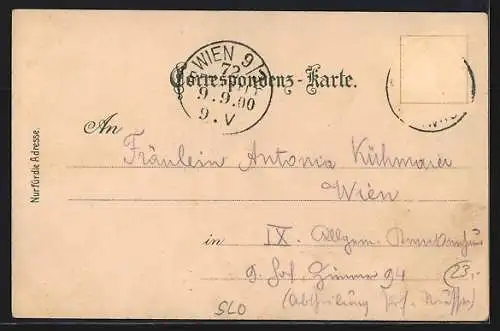 WIEN 9/
72
9.9.00
9.V
Correspondenz-Karte.
Nur für die Adresse.
An
Fräulein Antonia Kühmaier
Wien
in IX. Allgem. Krankenhaus
9. Hof, Zimmer 94 (23,-
(Abtheilung Prof.
560